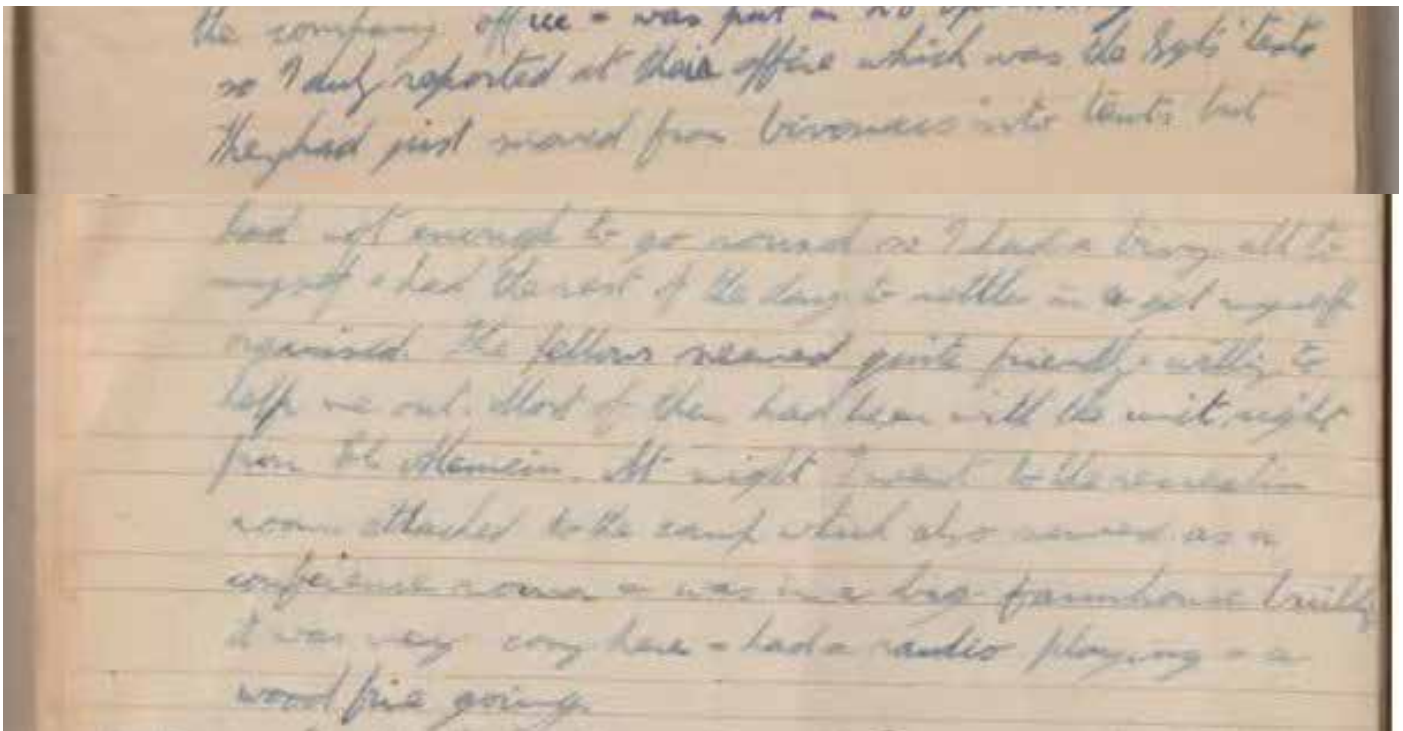 the company office - was put in no
so I duly reported at their office which was the Sgts' tents
They had just moved from bivouacs into tents but
had not enough to go round so I had a bivvy all to
myself & had the rest of the day to settle in & get myself
organised. The fellows seemed quite friendly & willing to
help me out. Most of them had been with the unit right
from El Alamein. At night I went to the recreation
room attached to the camp which also served as a
conference room & was in a big farmhouse building
it was very cosy here - had a radio playing & a
wood fire going.